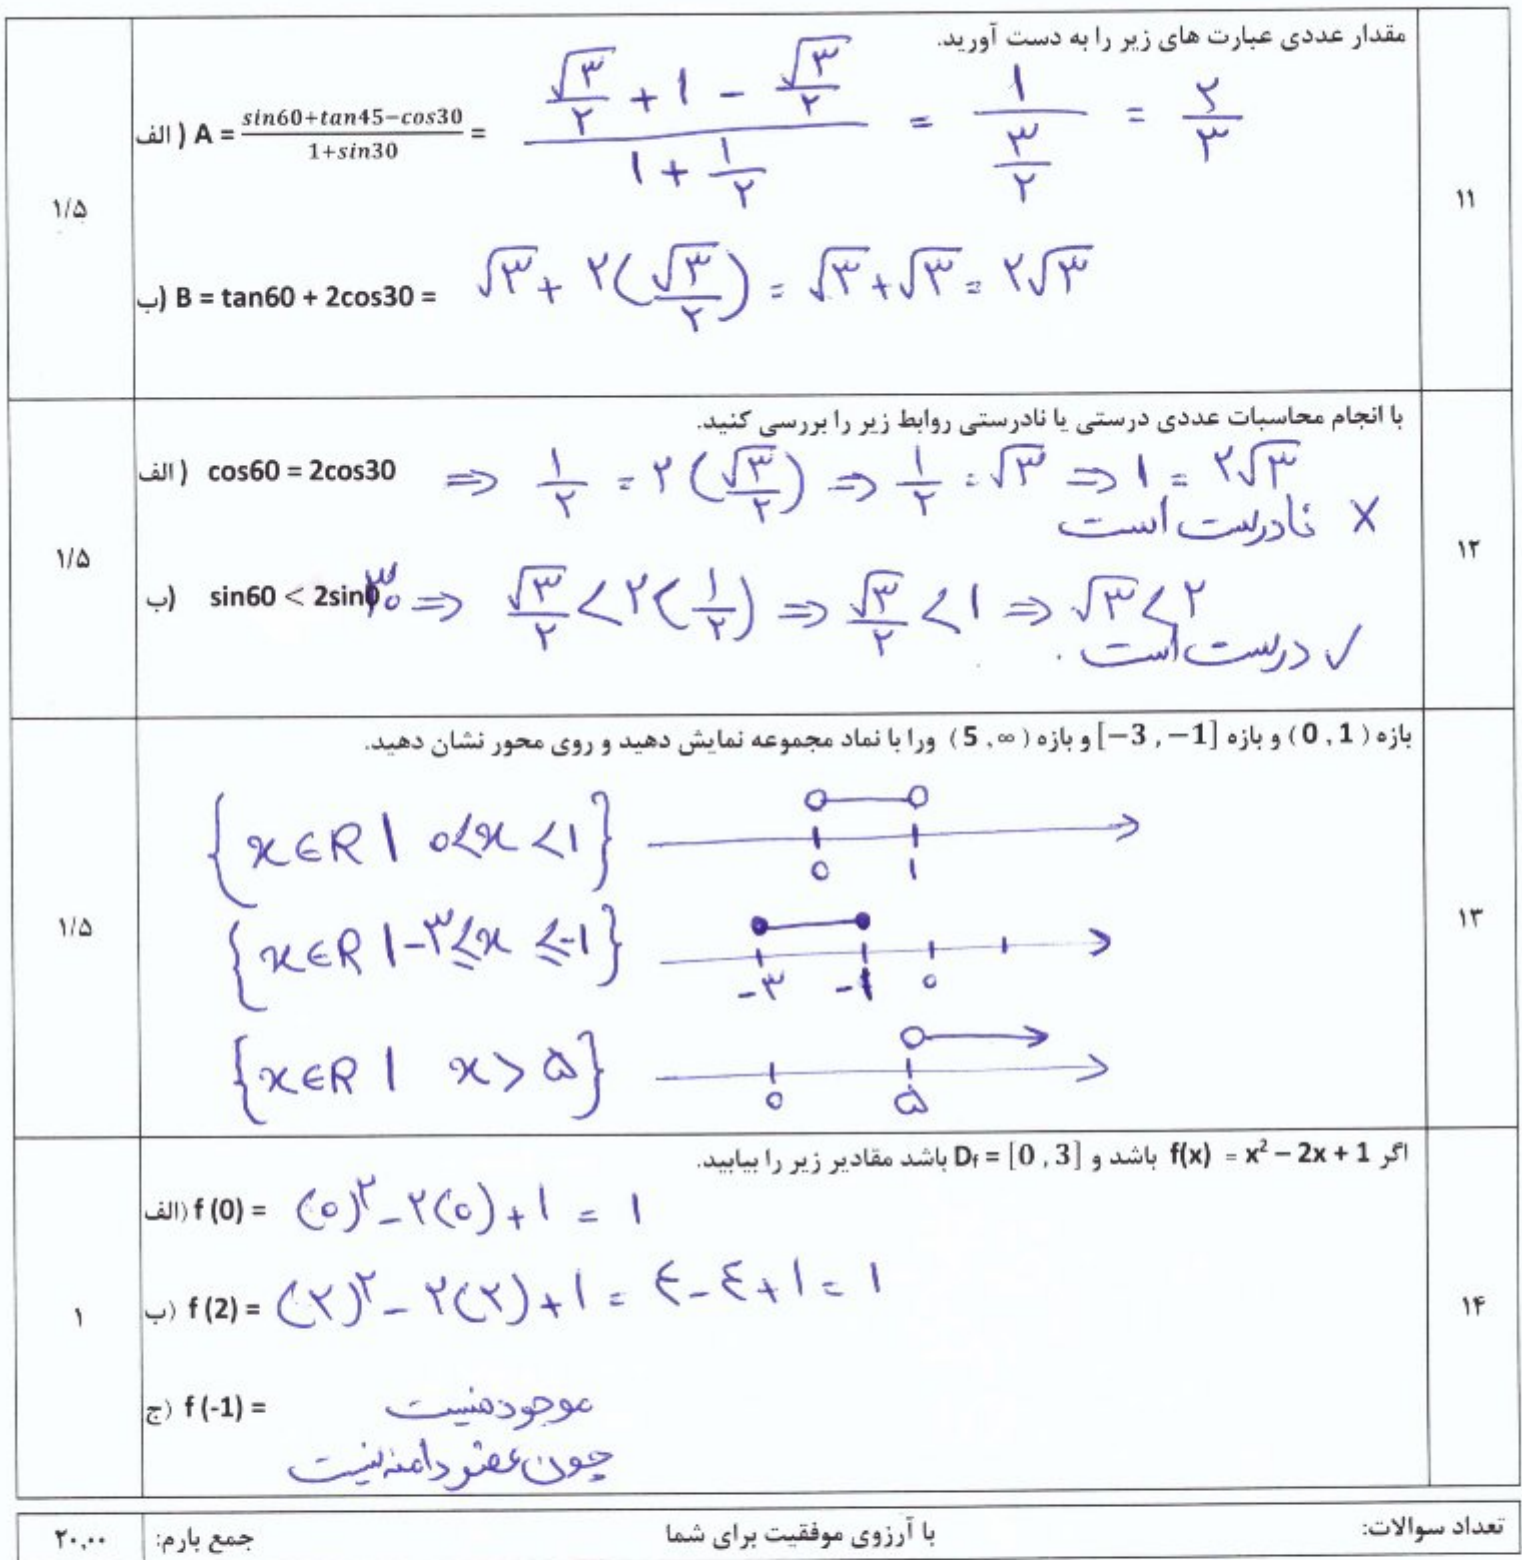 ۱۱
مقدار عددی عبارت های زیر را به دست آورید.
الف ) A = (sin60+tan45−cos30)/(1+sin30) = (√۳/۲ + ۱ − √۳/۲)/(۱ + ۱/۲) = ۱/(۳/۲) = ۲/۳
ب) B = tan60 + 2cos30 = √۳ + ۲(√۳/۲) = √۳ + √۳ = ۲√۳
۱/۵
۱۲
با انجام محاسبات عددی درستی یا نادرستی روابط زیر را بررسی کنید.
الف ) cos60 = 2cos30 ⇒ ۱/۲ = ۲(√۳/۲) ⇒ ۱/۲ = √۳ ⇒ ۱ = ۲√۳
✗ نادرست است
ب) sin60 < 2sin۳۰ ⇒ √۳/۲ < ۲(۱/۲) ⇒ √۳/۲ < ۱ ⇒ √۳ < ۲
✓ درست است .
۱/۵
۱۳
بازه (0 , 1) و بازه [−3 , −1] و بازه (5 , ∞) ورا با نماد مجموعه نمایش دهید و روی محور نشان دهید.
{x∈R | ۰<x<۱} ۰ ۱
{x∈R | −۳≤x≤−۱} −۳ −۱ ۰
{x∈R | x>۵} ۰ ۵
۱/۵
۱۴
اگر f(x) = x² − 2x + 1 باشد و Df = [0 , 3] باشد مقادیر زیر را بیابید.
الف) f (0) = (۰)² − ۲(۰) + ۱ = ۱
ب) f (2) = (۲)² − ۲(۲) + ۱ = ۴ − ۴ + ۱ = ۱
ج) f (-1) = موجود نیست
چون عضو دامنه نیست
۱
تعداد سوالات:
با آرزوی موفقیت برای شما
جمع بارم:
۲۰,۰۰